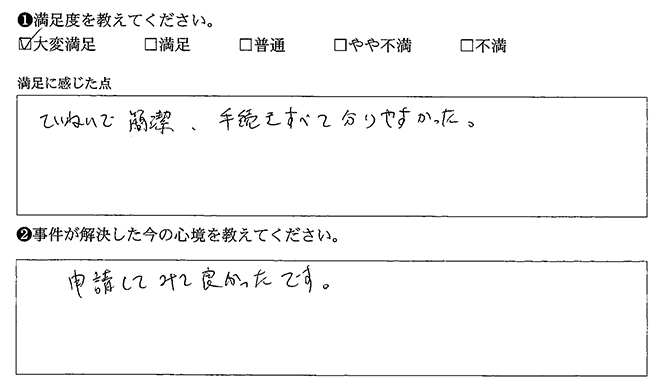 ❶満足度を教えてください。
☑大変満足 □満足 □普通 □やや不満 □不満
満足に感じた点
ていねいで簡潔、手続きすべて分りやすかった。
❷事件が解決した今の心境を教えてください。
申請してみて良かったです。